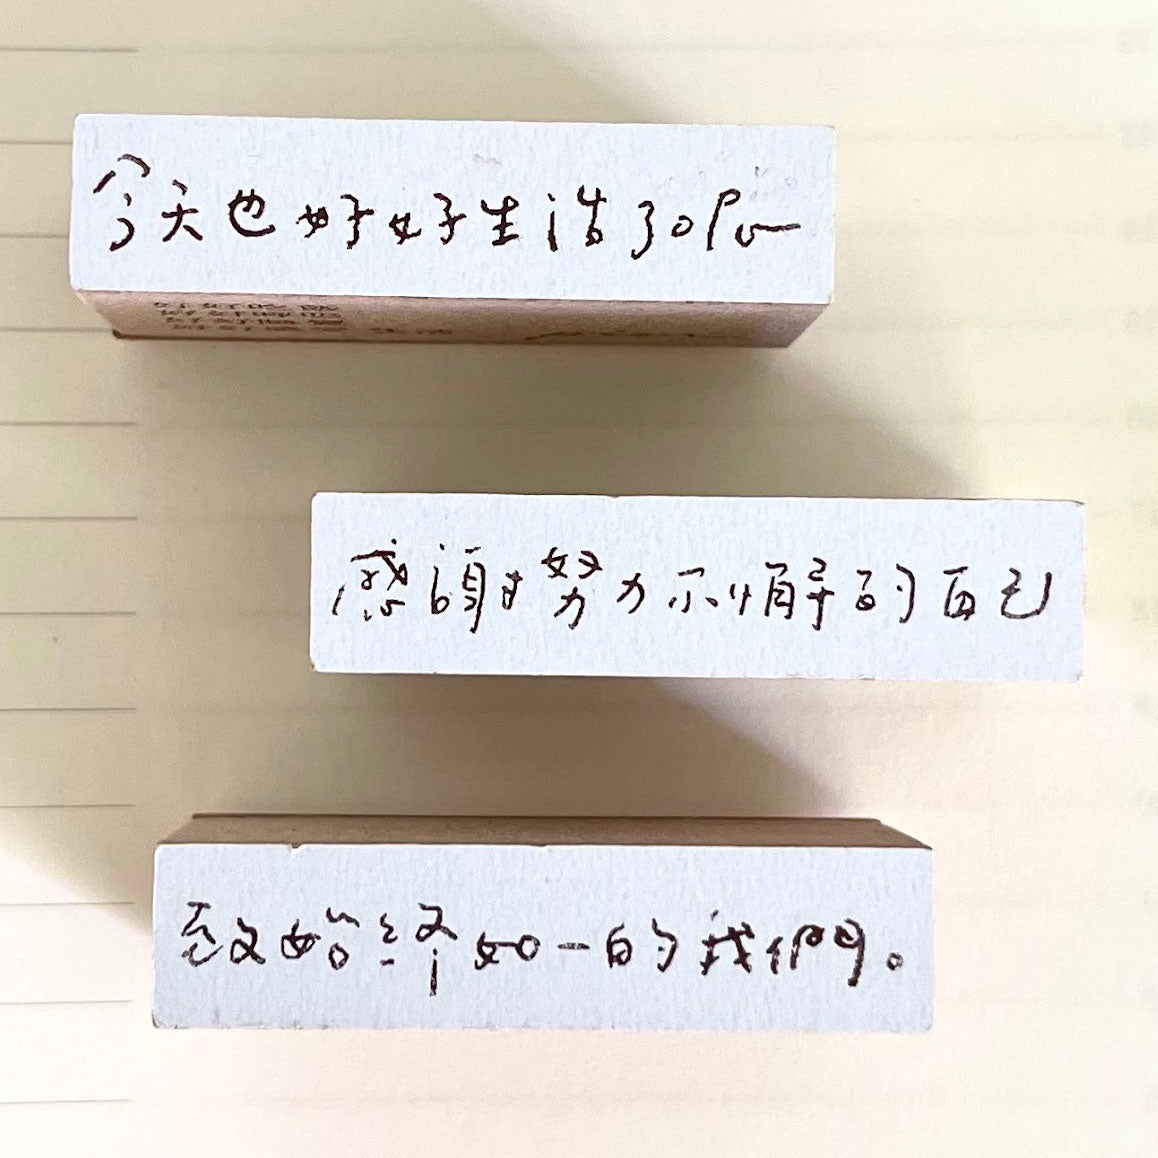 今天也好好生活了呢
感謝努力不懈的自己
致始終如一的我們。